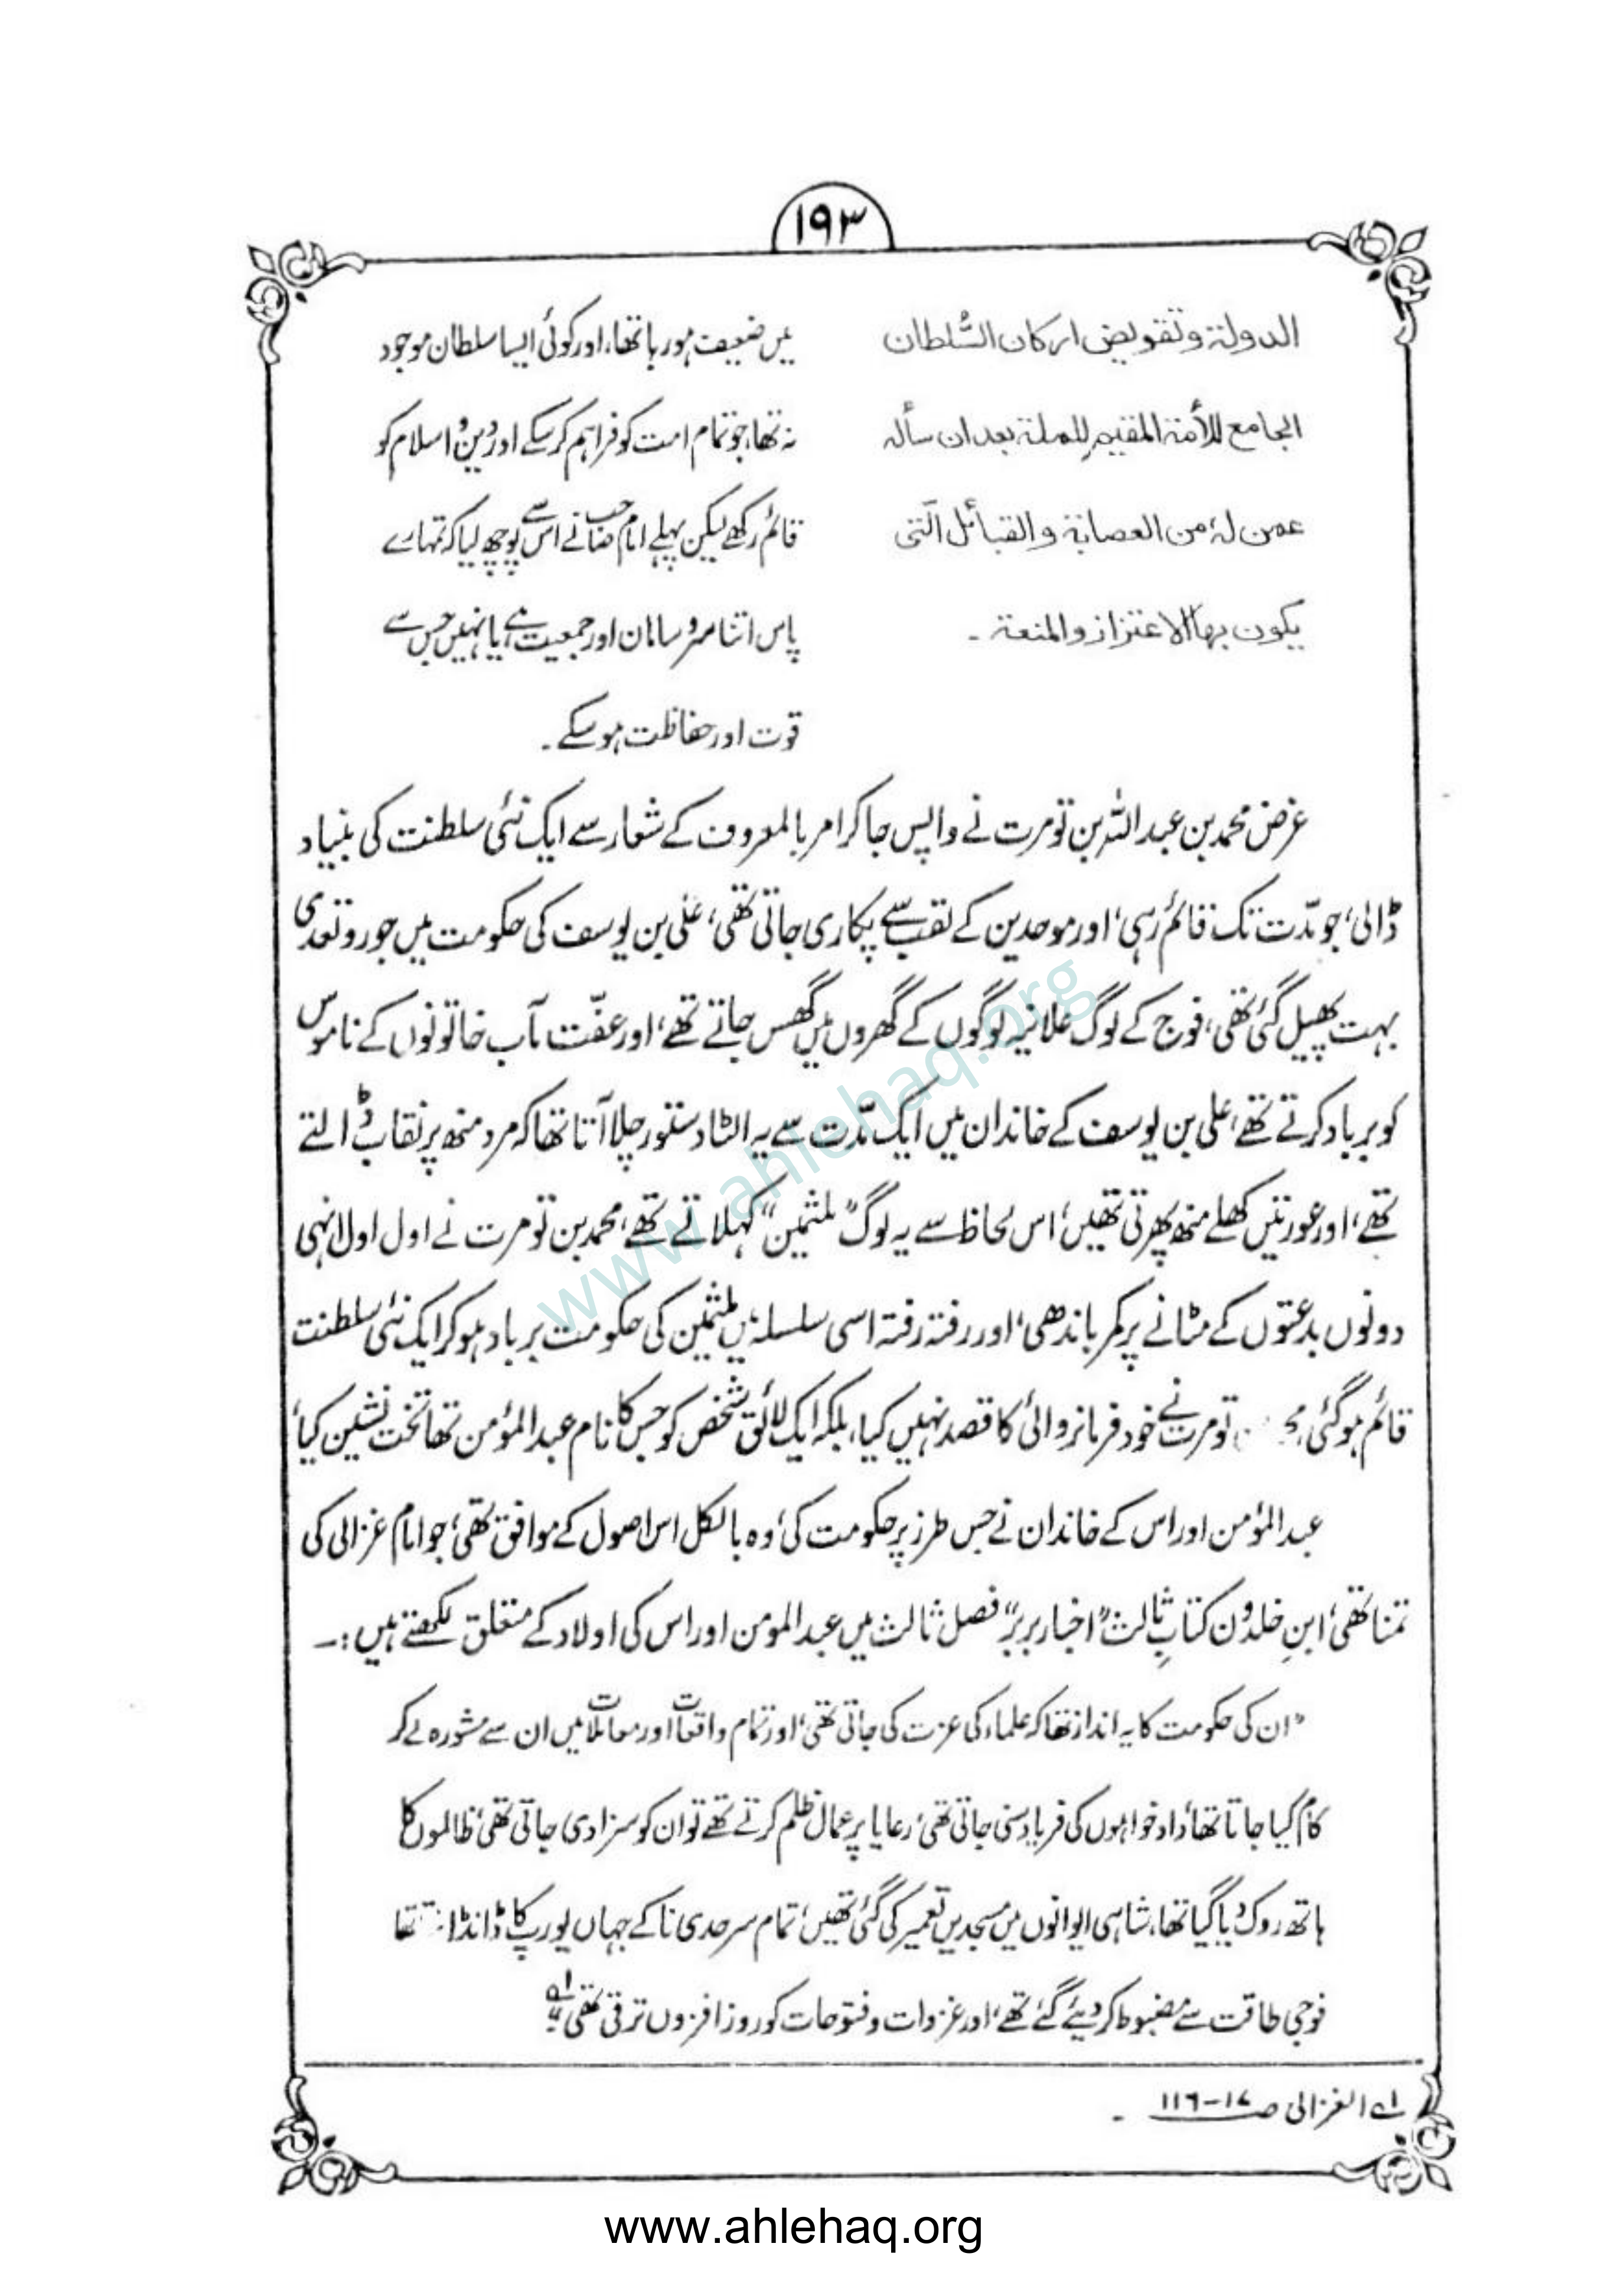 ۱۹۳
الدولة وتقويض اركان السُّلطان
الجامع للأمة المقيم للملة بعد ان سأله
عمن لهٗ من العصابة والقبائل الّتى
يكون بها الاعتزاز والمنعة۔
میں ضعیف ہو رہا تھا، اور کوئی ایسا سلطان موجود
نہ تھا، جو تمام امت کو فراہم کر سکے اور دینِ اسلام کو
قائم رکھے لیکن پہلے امام صاحب نے اس سے پوچھ لیا کہ تمہارے
پاس اتنا سروسامان اور جمعیت ہے یا نہیں جس سے
قوت اور حفاظت ہو سکے۔
غرض محمد بن عبداللہ بن تومرت نے واپس جا کر امر بالمعروف کے شعار سے ایک نئی سلطنت کی بنیاد
ڈالی، جو مدّت تک قائم رہی، اور موحدین کے لقب سے پکاری جاتی تھی، علی بن یوسف کی حکومت میں جور و تعدی
بہت پھیل گئی تھی، فوج کے لوگ علانیہ لوگوں کے گھروں میں گھس جاتے تھے، اور عفّت مآب خاتونوں کے ناموس
کو برباد کرتے تھے، علی بن یوسف کے خاندان میں ایک مدّت سے یہ الٹا دستور چلا آتا تھا کہ مرد منھ پر نقاب ڈالتے
تھے، اور عورتیں کھلے منھ پھرتی تھیں، اس لحاظ سے یہ لوگ "ملثمین" کہلاتے تھے، محمد بن تومرت نے اول اول انہی
دونوں بدعتوں کے مٹانے پر کمر باندھی، اور رفتہ رفتہ اسی سلسلہ میں ملثمین کی حکومت برباد ہو کر ایک نئی سلطنت
قائم ہو گئی، تومرت نے خود فرمانروائی کا قصد نہیں کیا، بلکہ ایک لائق شخص کو جس کا نام عبدالمؤمن تھا تخت نشین کیا،
عبدالمؤمن اور اس کے خاندان نے جس طرز پر حکومت کی، وہ بالکل اس اصول کے موافق تھی، جو امام غزالی کی
تمنا تھی، ابنِ خلدون کتابِ ثالث "اخبار بربر" فصل ثالث میں عبدالمومن اور اس کی اولاد کے متعلق لکھتے ہیں:۔
"ان کی حکومت کا یہ انداز تھا کہ علماء کی عزت کی جاتی تھی، اور تمام واقعات اور معاملات میں ان سے مشورہ لے کر
کام کیا جاتا تھا، داد خواہوں کی فریاد سنی جاتی تھی، رعایا پر عمال ظلم کرتے تھے تو ان کو سزا دی جاتی تھی، ظالموں کا
ہاتھ روک دیا گیا تھا، شاہی ایوانوں میں مسجدیں تعمیر کی گئی تھیں، تمام سرحدی ناکے جہاں یورپ کا ڈانڈا تھا
فوجی طاقت سے مضبوط کر دیئے گئے تھے، اور غزوات و فتوحات کو روز افزوں ترقی تھی" ۱؎
۱؎ الغزالی صـ ۱۷-۱۱۶ ۔
www.ahlehaq.org
www.ahlehaq.org